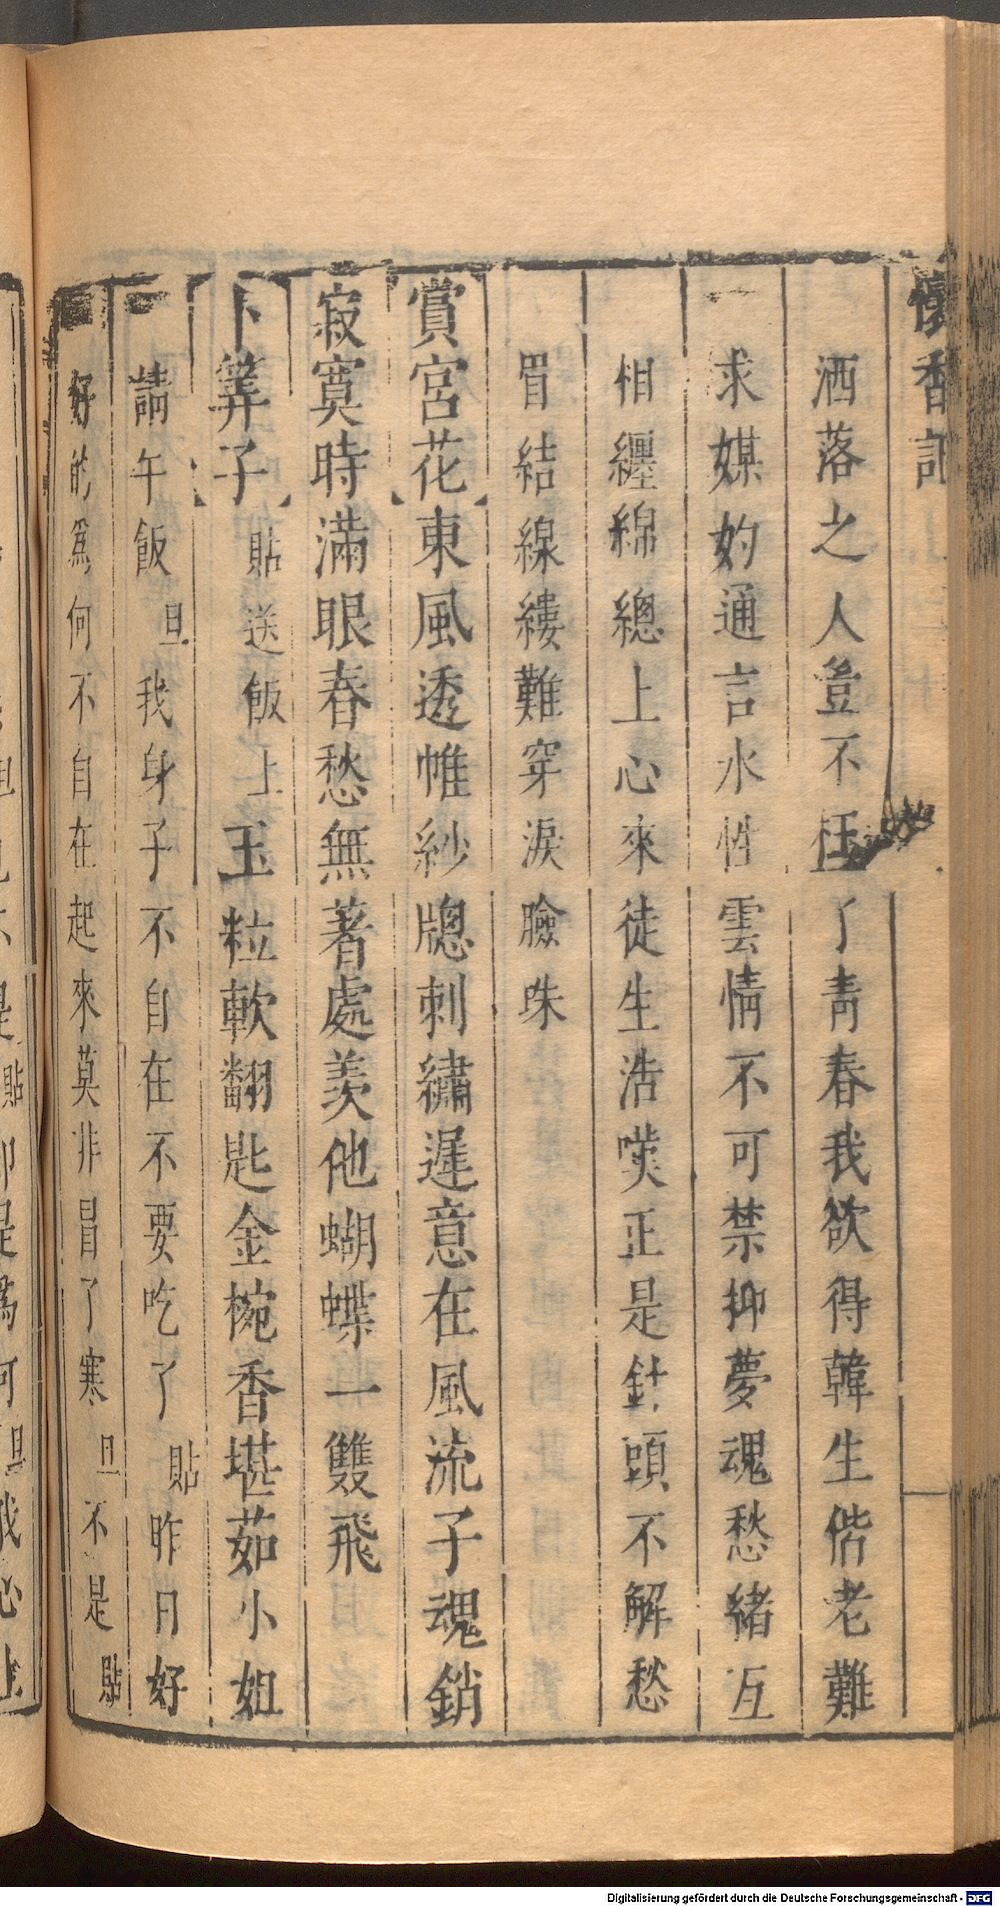 懷香記
洒落之人豈不枉了靑春我欲得韓生偕老難
求媒妁通言水性雲情不可禁抑夢魂愁緒互
相纏綿總上心來徒生浩嘆正是針頭不解愁
眉結線縷難穿淚臉珠
賞宮花東風透帷紗牕刺繡遲意在風流子魂銷
寂寞時滿眼春愁無著處羨他蝴蝶一雙飛
卜筭子貼送飯上玉粒軟翻匙金椀香堪茹小姐
請午飯旦我身子不自在不要吃了貼昨日好
好的爲何不自在起來莫非冒了寒旦不是貼
Digitalisierung gefördert durch die Deutsche Forschungsgemeinschaft - DFG